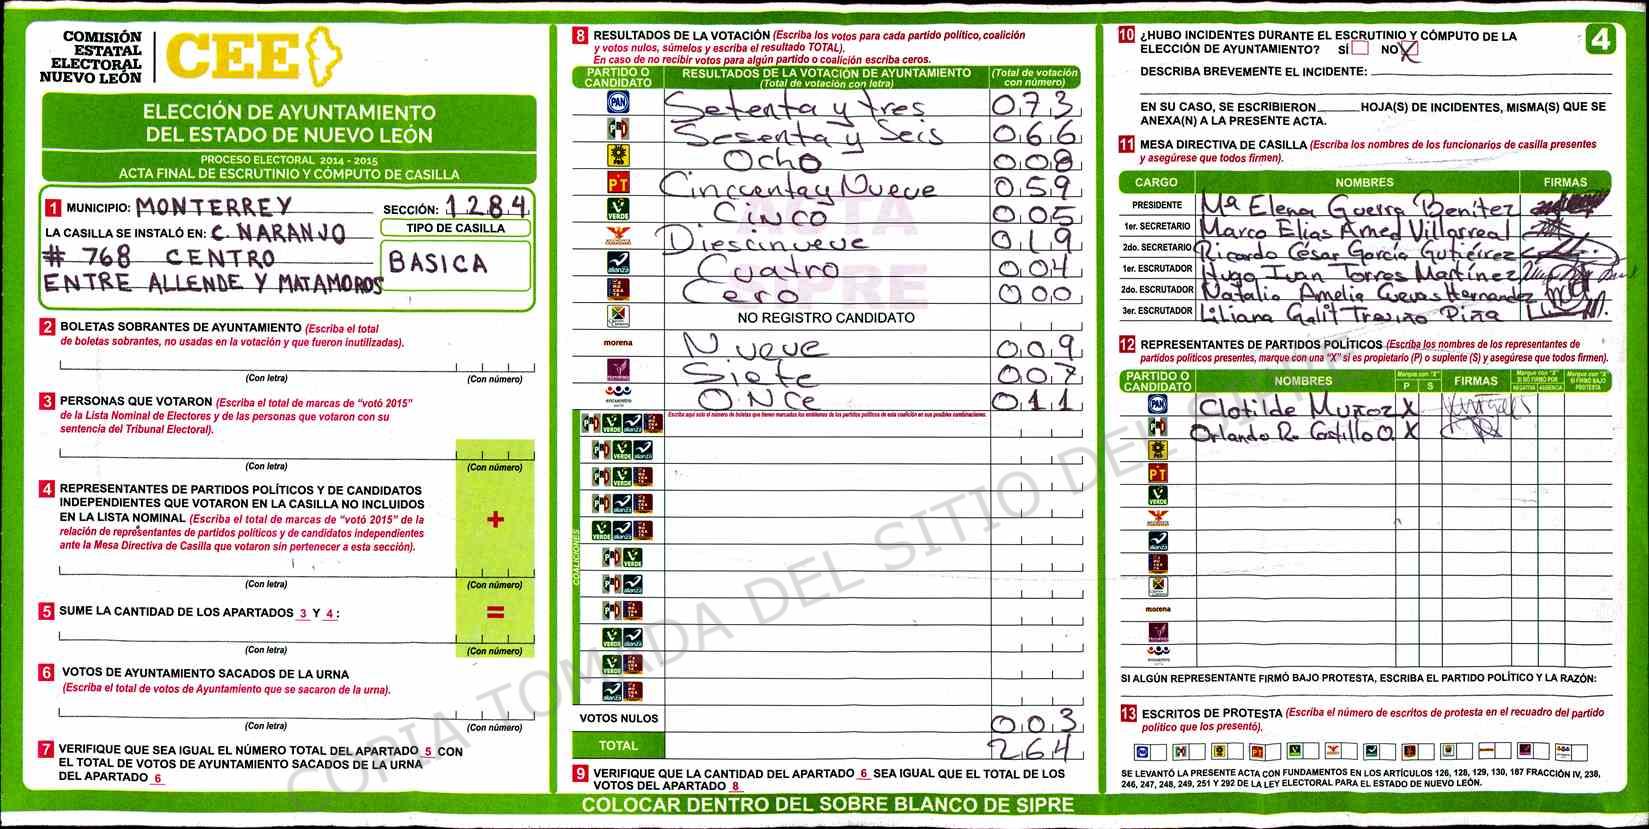 COMISIÓN
ESTATAL
ELECTORAL
NUEVO LEÓN
CEE
ELECCIÓN DE AYUNTAMIENTO
DEL ESTADO DE NUEVO LEÓN
PROCESO ELECTORAL 2014 - 2015
ACTA FINAL DE ESCRUTINIO Y CÓMPUTO DE CASILLA
1 MUNICIPIO: MONTERREY SECCIÓN: 1284
LA CASILLA SE INSTALÓ EN: C. NARANJO TIPO DE CASILLA
# 768 CENTRO BASICA
ENTRE ALLENDE Y MATAMOROS
2 BOLETAS SOBRANTES DE AYUNTAMIENTO (Escriba el total
de boletas sobrantes, no usadas en la votación y que fueron inutilizadas).
(Con letra) (Con número)
3 PERSONAS QUE VOTARON (Escriba el total de marcas de "votó 2015"
de la Lista Nominal de Electores y de las personas que votaron con su
sentencia del Tribunal Electoral).
(Con letra) (Con número)
4 REPRESENTANTES DE PARTIDOS POLÍTICOS Y DE CANDIDATOS
INDEPENDIENTES QUE VOTARON EN LA CASILLA NO INCLUIDOS
EN LA LISTA NOMINAL (Escriba el total de marcas de "votó 2015" de la
relación de representantes de partidos políticos y de candidatos independientes
ante la Mesa Directiva de Casilla que votaron sin pertenecer a esta sección).
+
(Con letra) (Con número)
5 SUME LA CANTIDAD DE LOS APARTADOS 3 Y 4: =
(Con letra) (Con número)
6 VOTOS DE AYUNTAMIENTO SACADOS DE LA URNA
(Escriba el total de votos de Ayuntamiento que se sacaron de la urna).
(Con letra) (Con número)
7 VERIFIQUE QUE SEA IGUAL EL NÚMERO TOTAL DEL APARTADO 5 CON
EL TOTAL DE VOTOS DE AYUNTAMIENTO SACADOS DE LA URNA
DEL APARTADO 6
8 RESULTADOS DE LA VOTACIÓN (Escriba los votos para cada partido político, coalición
y votos nulos, súmelos y escriba el resultado TOTAL).
En caso de no recibir votos para algún partido o coalición escriba ceros.
PARTIDO O CANDIDATO RESULTADOS DE LA VOTACIÓN DE AYUNTAMIENTO (Total de votación con letra) (Total de votación con número)
PAN Setenta y tres 073
PRI Sesenta y Seis 066
PRD Ocho 008
PT Cincuenta y Nueve 059
VERDE Cinco 005
Diescinueve 019
alianza Cuatro 004
Cero 000
NO REGISTRO CANDIDATO
morena Nueve 009
Siete 007
encuentro Once 011
ACTA
SIPRE
Escriba aquí solo el número de boletas que tienen marcados los emblemas de los partidos políticos de esta coalición en sus posibles combinaciones.
COALICIONES
VOTOS NULOS 003
TOTAL 264
9 VERIFIQUE QUE LA CANTIDAD DEL APARTADO 6 SEA IGUAL QUE EL TOTAL DE LOS
VOTOS DEL APARTADO 8
COLOCAR DENTRO DEL SOBRE BLANCO DE SIPRE
10 ¿HUBO INCIDENTES DURANTE EL ESCRUTINIO Y CÓMPUTO DE LA
ELECCIÓN DE AYUNTAMIENTO? SÍ NO X
4
DESCRIBA BREVEMENTE EL INCIDENTE:
EN SU CASO, SE ESCRIBIERON HOJA(S) DE INCIDENTES, MISMA(S) QUE SE
ANEXA(N) A LA PRESENTE ACTA.
11 MESA DIRECTIVA DE CASILLA (Escriba los nombres de los funcionarios de casilla presentes
y asegúrese que todos firmen).
CARGO NOMBRES FIRMAS
PRESIDENTE Ma Elena Guerra Benítez
1er. SECRETARIO Marco Elias Amed Villarreal
2do. SECRETARIO Ricardo César García Gutiérrez
1er. ESCRUTADOR Hugo Ivan Torres Martínez
2do. ESCRUTADOR Natalia Amelia Cuevas Hernandez
3er. ESCRUTADOR Liliana Galit Treviño Piña
12 REPRESENTANTES DE PARTIDOS POLÍTICOS (Escriba los nombres de los representantes de
partidos políticos presentes, marque con una "X" si es propietario (P) o suplente (S) y asegúrese que todos firmen).
PARTIDO O CANDIDATO NOMBRES Marque con "X" P S FIRMAS Marque con "X" SI NO FIRMÓ POR NEGATIVA AUSENCIA Marque con "X" SI FIRMÓ BAJO PROTESTA
PAN Clotilde Muñoz X
PRI Orlando R. Castillo O. X
PRD
PT
VERDE
alianza
morena
encuentro
SI ALGÚN REPRESENTANTE FIRMÓ BAJO PROTESTA, ESCRIBA EL PARTIDO POLÍTICO Y LA RAZÓN:
13 ESCRITOS DE PROTESTA (Escriba el número de escritos de protesta en el recuadro del partido
político que los presentó).
SE LEVANTÓ LA PRESENTE ACTA CON FUNDAMENTOS EN LOS ARTÍCULOS 126, 128, 129, 130, 187 FRACCIÓN IV, 238,
246, 247, 248, 249, 251 Y 292 DE LA LEY ELECTORAL PARA EL ESTADO DE NUEVO LEÓN.
COPIA TOMADA DEL SITIO DEL SIPRE